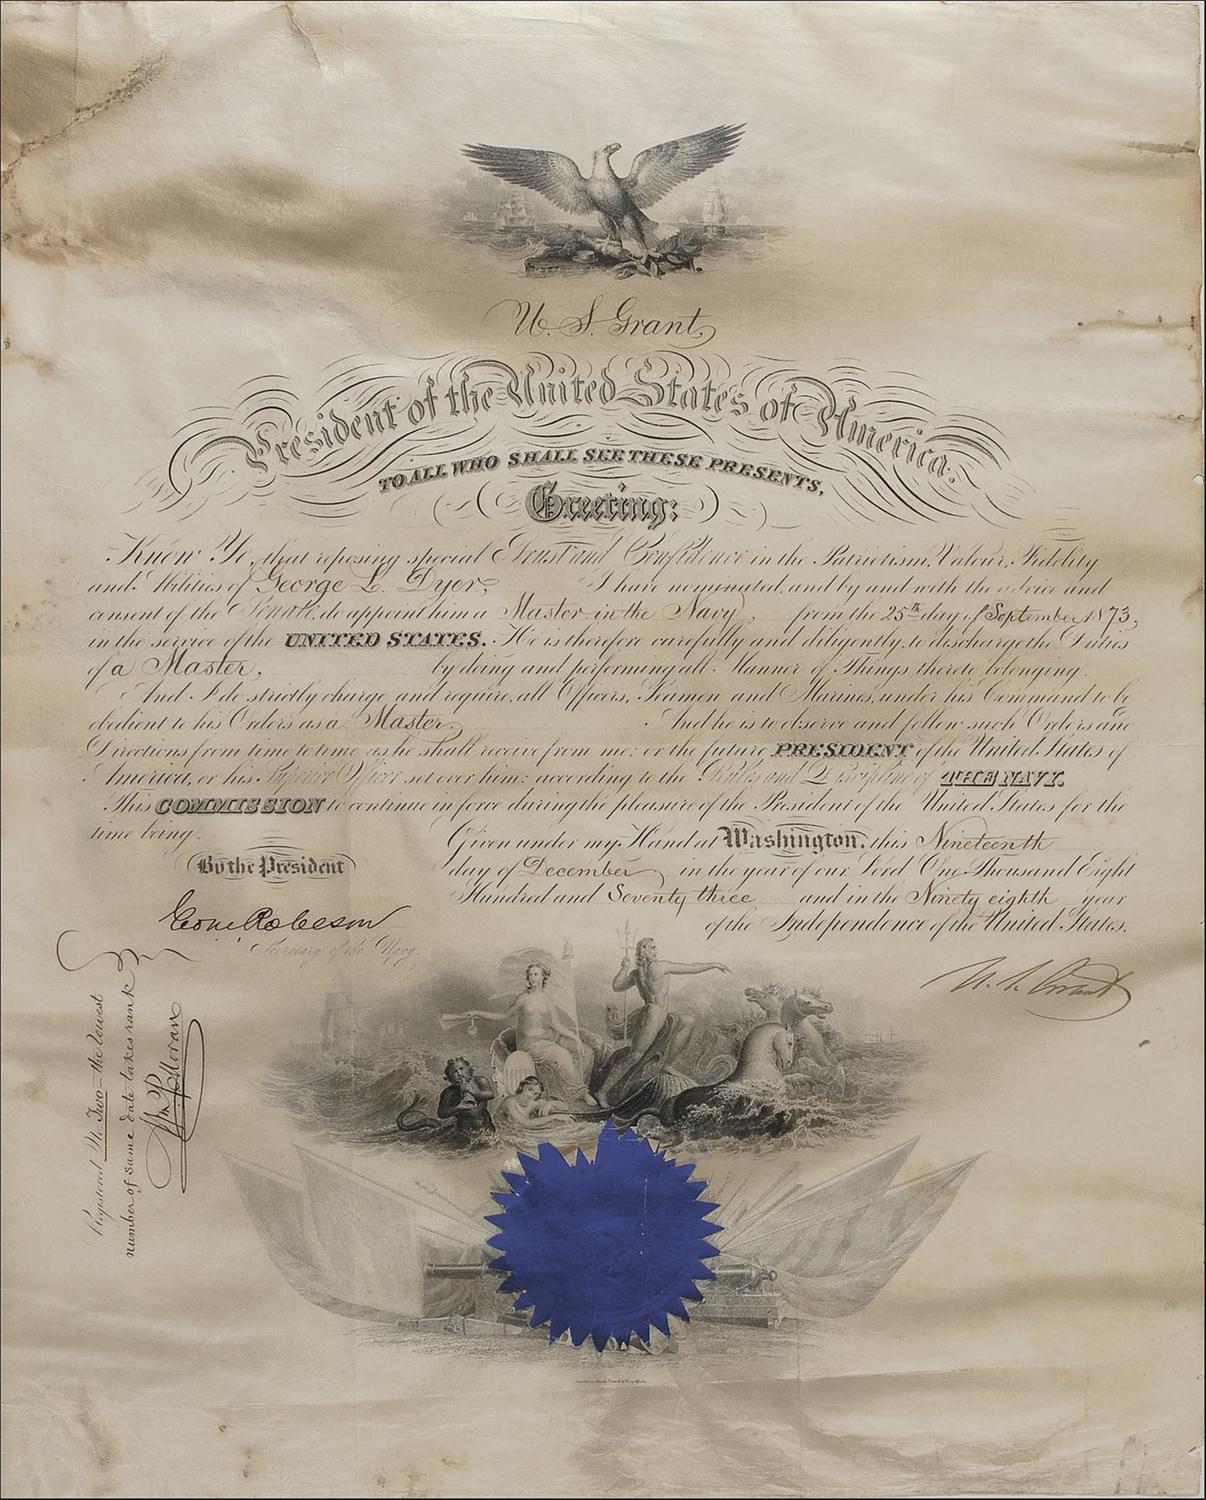 U. S. Grant,
President of the United States of America.
TO ALL WHO SHALL SEE THESE PRESENTS,
Greeting:
Know Ye, that reposing special Trust and Confidence in the Patriotism, Valour, Fidelity
and Abilities of George L. Dyer, I have nominated, and by and with the advice and
consent of the Senate, do appoint him a Master in the Navy, from the 25th day of September 1873,
in the service of the UNITED STATES. He is therefore carefully and diligently, to discharge the Duties
of a Master, by doing and performing all Manner of Things thereto belonging.
And I do strictly charge, and require, all Officers, Seamen and Marines, under his Command to be
obedient to his Orders as a Master. And he is to observe and follow such Orders and
Directions from time to time as he shall receive from me, or the future PRESIDENT of the United States of
America, or his Superior Officer set over him, according to the Rules and Discipline of THE NAVY.
This COMMISSION to continue in force during the pleasure of the President of the United States for the
time being.
Given under my Hand at Washington, this Nineteenth
day of December, in the year of our Lord One Thousand Eight
Hundred and Seventy three and in the Ninety eighth year
of the Independence of the United States.
By the President
Geo M. Robeson
Secretary of the Navy.
U. S. Grant
Registered No Two – the lowest
number of same date takes rank
Wm P Moran